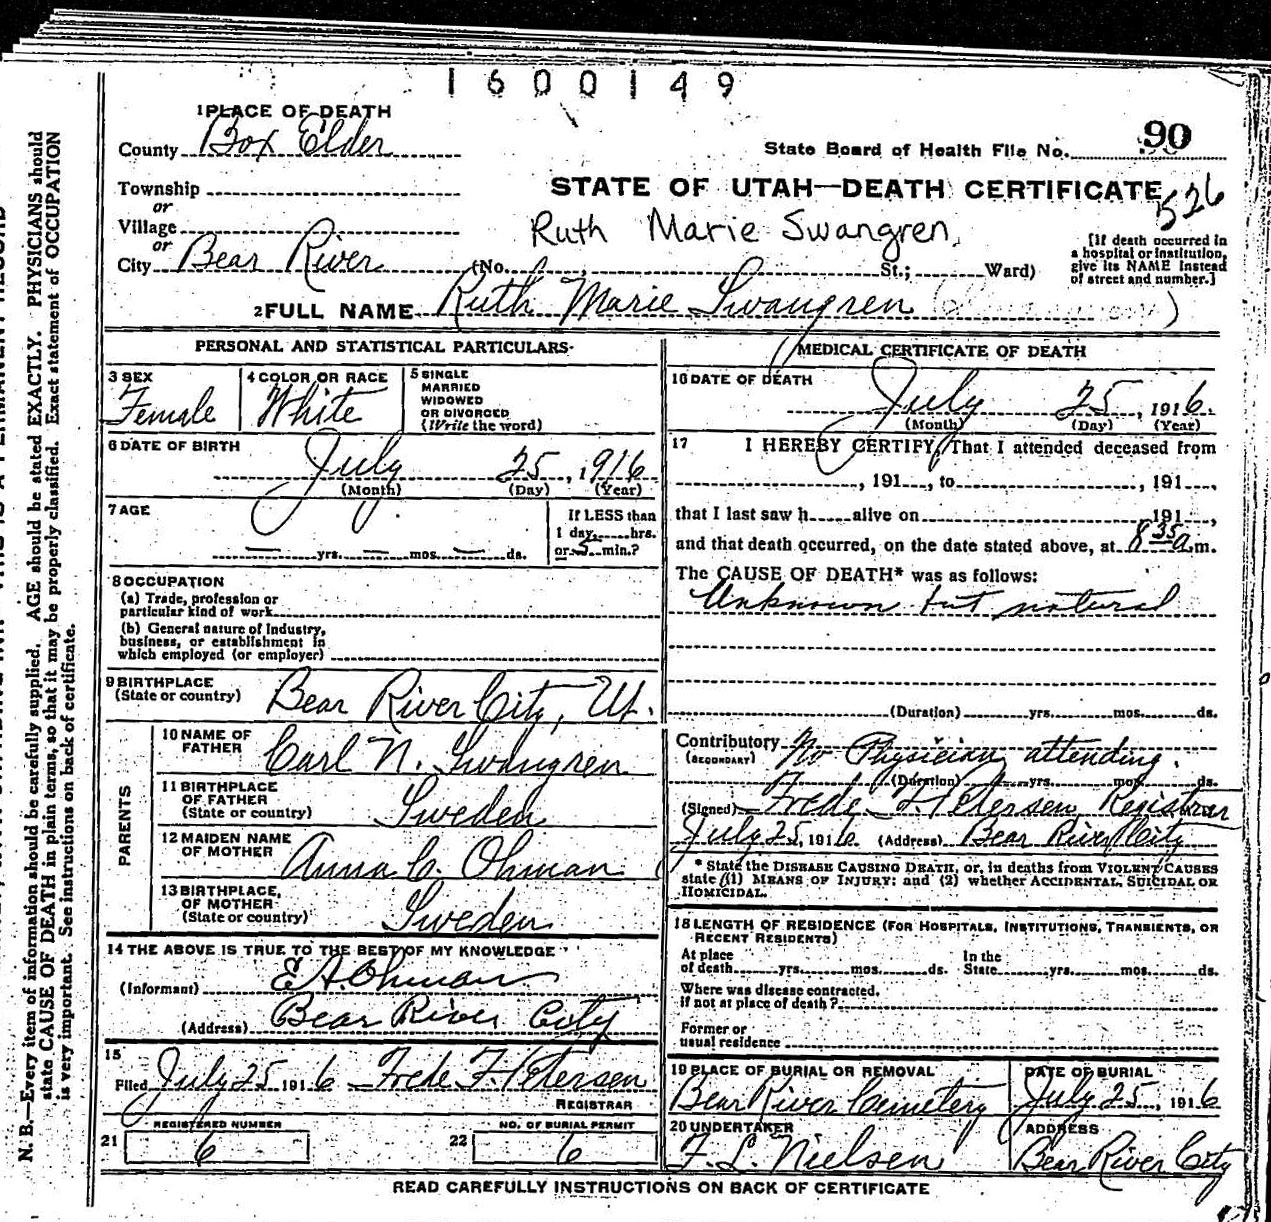 1600149
1 PLACE OF DEATH
County Box Elder
State Board of Health File No. 90
Township
or
STATE OF UTAH—DEATH CERTIFICATE
526
Village
or
Ruth Marie Swangren
City Bear River (No. St.; Ward)
[If death occurred in
a hospital or institution,
give its NAME instead
of street and number.]
2 FULL NAME Ruth Marie Swangren
PERSONAL AND STATISTICAL PARTICULARS
3 SEX
Female
4 COLOR OR RACE
White
5 SINGLE
MARRIED
WIDOWED
OR DIVORCED
(Write the word)
6 DATE OF BIRTH
July 25, 1916
(Month) (Day) (Year)
7 AGE
— yrs. — mos. — ds.
If LESS than
1 day, hrs.
or 5 min.?
8 OCCUPATION
(a) Trade, profession or
particular kind of work
(b) General nature of Industry,
business, or establishment in
which employed (or employer)
9 BIRTHPLACE
(State or country) Bear River City, Ut.
PARENTS
10 NAME OF
FATHER Carl N. Swangren
11 BIRTHPLACE
OF FATHER
(State or country) Sweden
12 MAIDEN NAME
OF MOTHER Anna C. Ohman
13 BIRTHPLACE
OF MOTHER
(State or country) Sweden
14 THE ABOVE IS TRUE TO THE BEST OF MY KNOWLEDGE
(Informant) E A. Ohman
(Address) Bear River City
15
Filed July 25 1916 Frede F. Petersen
REGISTRAR
REGISTERED NUMBER
21 6
NO. OF BURIAL PERMIT
22 6
MEDICAL CERTIFICATE OF DEATH
16 DATE OF DEATH
July 25, 1916.
(Month) (Day) (Year)
17 I HEREBY CERTIFY, That I attended deceased from
, 191 , to , 191 ,
that I last saw h alive on 191 ,
and that death occurred, on the date stated above, at 8 35 a.m.
The CAUSE OF DEATH* was as follows:
Unknown but natural
(Duration) yrs. mos. ds.
Contributory No Physician attending.
(SECONDARY)
(Duration) yrs. mos. ds.
(Signed) Frede F. Petersen, Registrar
July 25, 1916 (Address) Bear River City
* State the DISEASE CAUSING DEATH, or, in deaths from VIOLENT CAUSES
state (1) MEANS OF INJURY; and (2) whether ACCIDENTAL, SUICIDAL OR
HOMICIDAL.
18 LENGTH OF RESIDENCE (FOR HOSPITALS, INSTITUTIONS, TRANSIENTS, OR
RECENT RESIDENTS)
At place
of death yrs. mos. ds.
In the
State yrs. mos. ds.
Where was disease contracted,
If not at place of death?
Former or
usual residence
19 PLACE OF BURIAL OR REMOVAL
Bear River Cemetery
DATE OF BURIAL
July 25, 1916
20 UNDERTAKER
F. L. Nielsen
ADDRESS
Bear River City
READ CAREFULLY INSTRUCTIONS ON BACK OF CERTIFICATE
N. B.—Every item of information should be carefully supplied. AGE should be stated EXACTLY. PHYSICIANS should
state CAUSE OF DEATH in plain terms, so that it may be properly classified. Exact statement of OCCUPATION
is very important. See instructions on back of certificate.